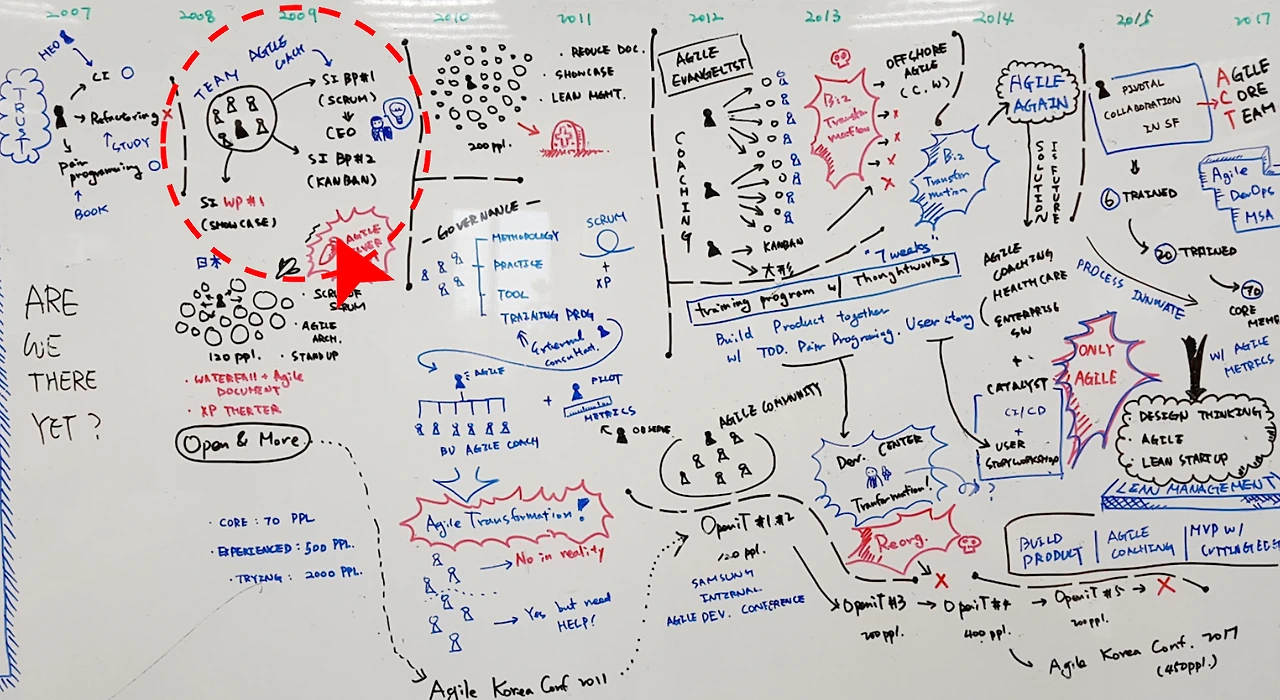 2007
2008
2009
2010
2011
2012
2013
2014
2015
2017
HEO
TRUST
CI
Refactoring
STUDY
pair
programming
BOOK
ARE
WE
THERE
YET?
TEAM
AGILE
COACH
SI BP#1
(SCRUM)
CEO
SI BP#2
(KANBAN)
SI WP#1
(SHOWCASE)
AGILE
日本
SCRUM OF
SCRUM
· AGILE
ARCH.
· STAND UP
120 ppl.
· WATERFALL + Agile
DOCUMENT
· XP THEATER
Open & More
· CORE : 70 PPL
· EXPERIENCED : 500 PPL.
· TRYING : 2000 PPL.
· REDUCE DOC.
· SHOWCASE
· LEAN MGMT.
200 ppl.
GOVERNANCE
METHODOLOGY
PRACTICE
TOOL
TRAINING PROG
SCRUM
+
XP
External
consultant.
AGILE
BU AGILE COACH
+
PILOT
METRICS
OBSERVE
Agile Transformation!
No in reality
Yes but need
HELP!
Agile Korea Conf 2011
AGILE
EVANGELIST
COACHING
KANBAN
Biz
Transfor
mation
OFFSHORE
AGILE
(C, W)
Biz
Transfor
mation
"7 weeks"
training program w/ Thoughtworks
Build Product together
w/ TDD. Pair Programing. User story
AGILE COMMUNITY
OpeniT #1 #2
120 ppl.
SAMSUNG
INTERNAL
AGILE DEV. CONFERENCE
Dev. CENTER
Tranformation!
?
Reorg.
OpeniT #3
200 ppl.
OpeniT #4
400 ppl.
OpeniT #5
200 ppl.
Agile Korea Conf. 2017
(450ppl.)
AGILE
AGAIN
SOLUTION
IS FUTURE
AGILE
COACHING
HEALTHCARE
ENTERPRISE
SW
+
CATALYST
CI/CD
+
USER
STORY WORKSHOP
ONLY
AGILE
PIVOTAL
COLLABORATION
IN SF
AGILE
CORE
TEAM
6 TRAINED
20 TRAINED
70
CORE MEMB
Agile
DevOps
MSA
PROCESS INNOVATE
W/ AGILE
METRICS
· DESIGN THINKING
· AGILE
· LEAN STARTUP
LEAN MANAGEMENT
BUILD
PRODUCT
AGILE
COACHING
MVP W/
CUTTING EDGE